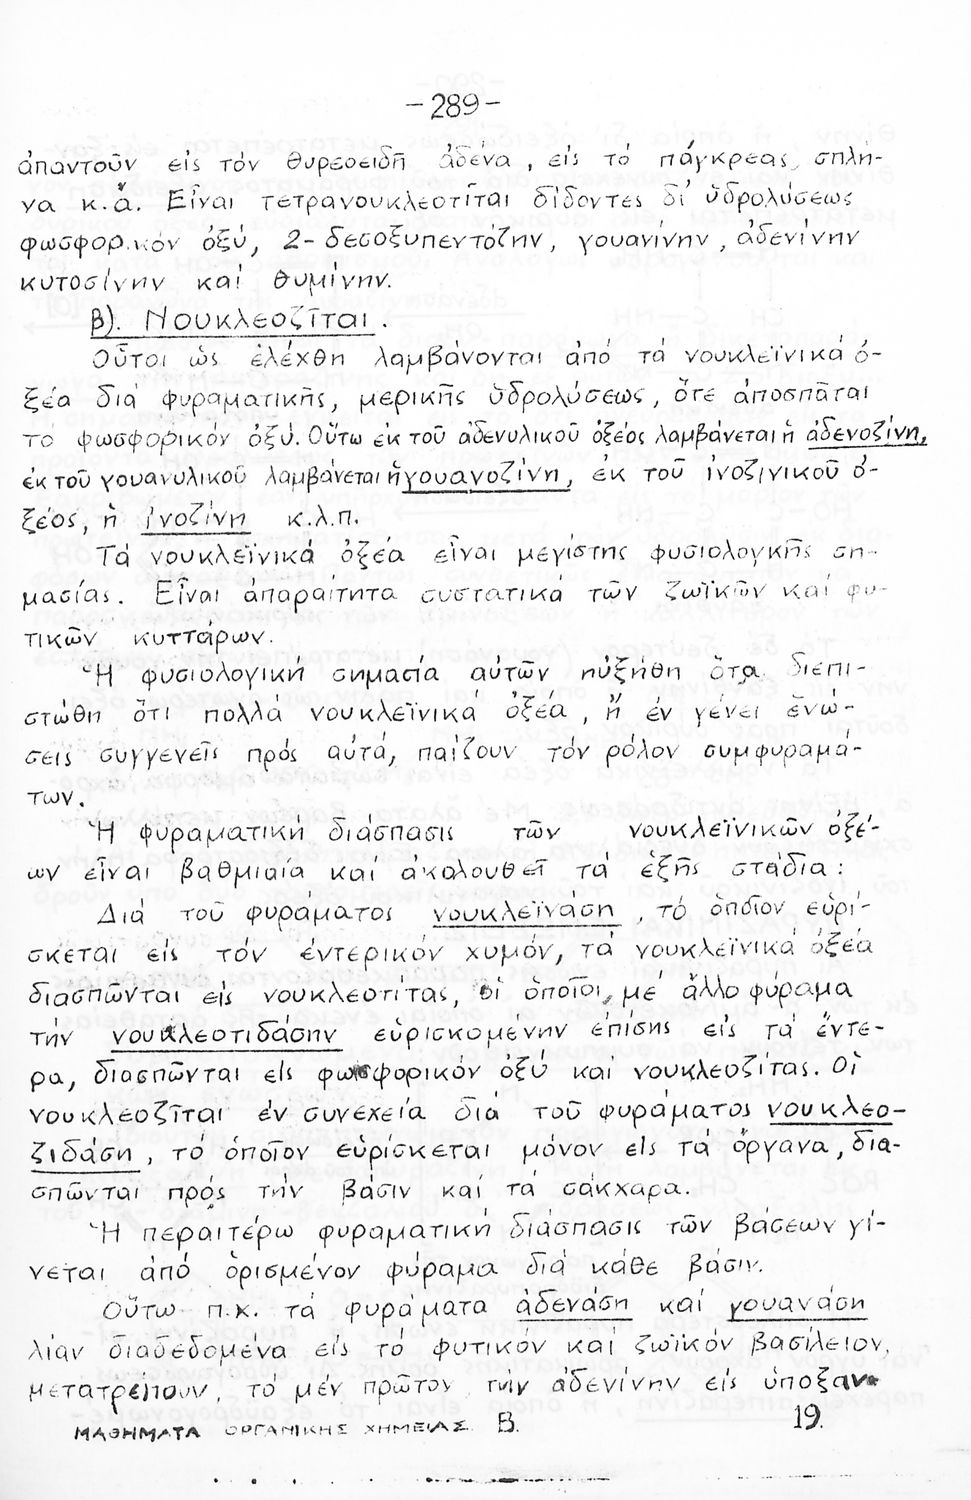 -289-
ἀπαντοῦν εἰς τόν θυρεοειδῆ ἀδένα, εἰς τό πάγκρεας, σπλῆ-
να κ.ἄ. Εἶναι τετρανουκλεοτῖται δίδοντες δι' ὑδρολύσεως
φωσφορικόν ὀξύ, 2-δεσοξυπεντόζην, γουανίνην, ἀδενίνην
κυτοσίνην καί θυμίνην.
β). Νουκλεοζῖται.
Οὗτοι ὡς ἐλέχθη λαμβάνονται ἀπό τά νουκλεϊνικά ὀ-
ξέα διά φυραματικῆς, μερικῆς ὑδρολύσεως, ὅτε ἀποσπᾶται
το φωσφορικόν ὀξύ. Οὕτω ἐκ τοῦ ἀδενυλικοῦ ὀξέος λαμβάνεται ἡ ἀδενοζίνη,
ἐκ τοῦ γουανυλικοῦ λαμβάνεται ἡ γουανοζίνη, ἐκ τοῦ ἰνοζινικοῦ ὀ-
ξέος, ἡ ἰνοζίνη κ.λ.π.
Τά νουκλεϊνικά ὀξέα εἶναι μεγίστης φυσιολογικῆς ση-
μασίας. Εἶναι ἀπαραίτητα συστατικα τῶν ζωϊκῶν καί φυ-
τικῶν κυττάρων.
Ἡ φυσιολογική σημασία αὐτῶν ηὐξήθη ὅτα διεπι-
στώθη ὅτι πολλά νουκλεϊνικά ὀξέα, ἤ ἐν γένει ἑνώ-
σεις συγγενεῖς πρός αὐτά, παίζουν τόν ρόλον συμφυραμά-
των.
Ἡ φυραματική διάσπασις τῶν νουκλεϊνικῶν ὀξέ-
ων εἶναι βαθμιαία καί ἀκολουθεῖ τά ἑξῆς στάδια:
Διά τοῦ φυράματος νουκλεϊνάση, τό ὁποῖον εὑρί-
σκεται εἰς τόν ἐντερικόν χυμόν, τά νουκλεϊνικά ὀξέα
διασπῶνται εἰς νουκλεοτίτας, οἱ ὁποῖοι, με ἄλλο φύραμα
τήν νουκλεοτιδάσην εὑρισκομένην ἐπίσης εἰς τά ἔντε-
ρα, διασπῶνται εἰς φωσφορικόν ὀξύ καί νουκλεοζίτας. Οἱ
νουκλεοζῖται ἐν συνεχεία διά τοῦ φυράματος νουκλεο-
ζιδάση, τό ὁποῖον εὑρίσκεται μόνον εἰς τά ὄργανα, δια-
σπῶνται πρός τήν βάσιν καί τά σάκχαρα.
Ἡ περαιτέρω φυραματική διάσπασις τῶν βάσεων γί-
νεται ἀπό ὁρισμένον φύραμα διά κάθε βάσιν.
Οὕτω π.χ. τά φυράματα ἀδενάση καί γουανάση
λίαν διαδεδομένα εἰς τό φυτικόν καί ζωϊκόν βασίλειον,
μετατρέπουν, τό μέν πρῶτον τήν ἀδενίνην εἰς ὑποξαν-
ΜΑΘΗΜΑΤΑ ΟΡΓΑΝΙΚΗΣ ΧΗΜΕΙΑΣ Β. 19.